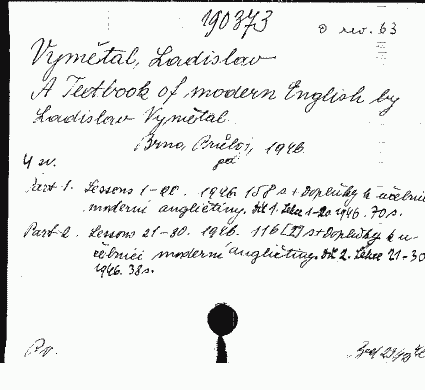 190373
o rev. 63
Vymětal, Ladislav
A Textbook of modern English by
Ladislav Vymětal.
Brno, Průboj, 1946.
4 sv.
Part 1. Lessons 1-20. 1946. 158 s + Doplňky k učebnici
moderní angličtiny. Díl 1. Lekce 1-20 1946. 70 s.
Part 2. Lessons 21-30. 1946. 116 [I] s + Doplňky k u-
čebnici moderní angličtiny. Díl 2. Lekce 21-30
1946. 38 s.